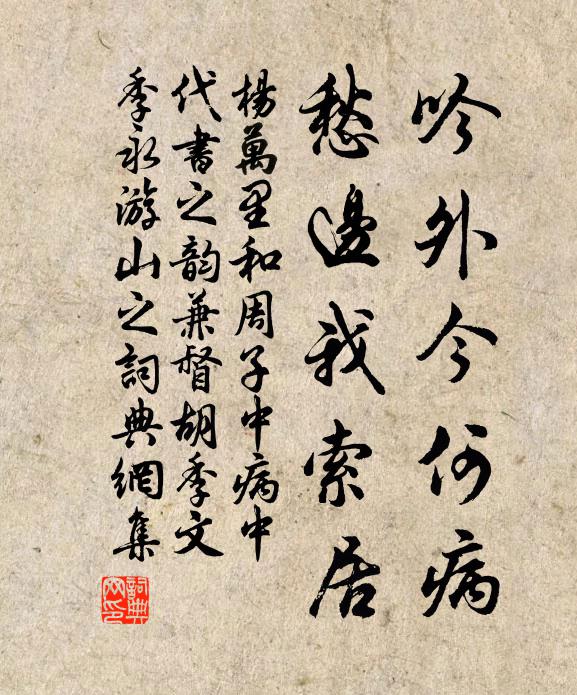 吟外今何病
愁邊我索居
楊萬里和周子中病中
代書之韵兼督胡季文
季永游山之詞典網集
詞典網印